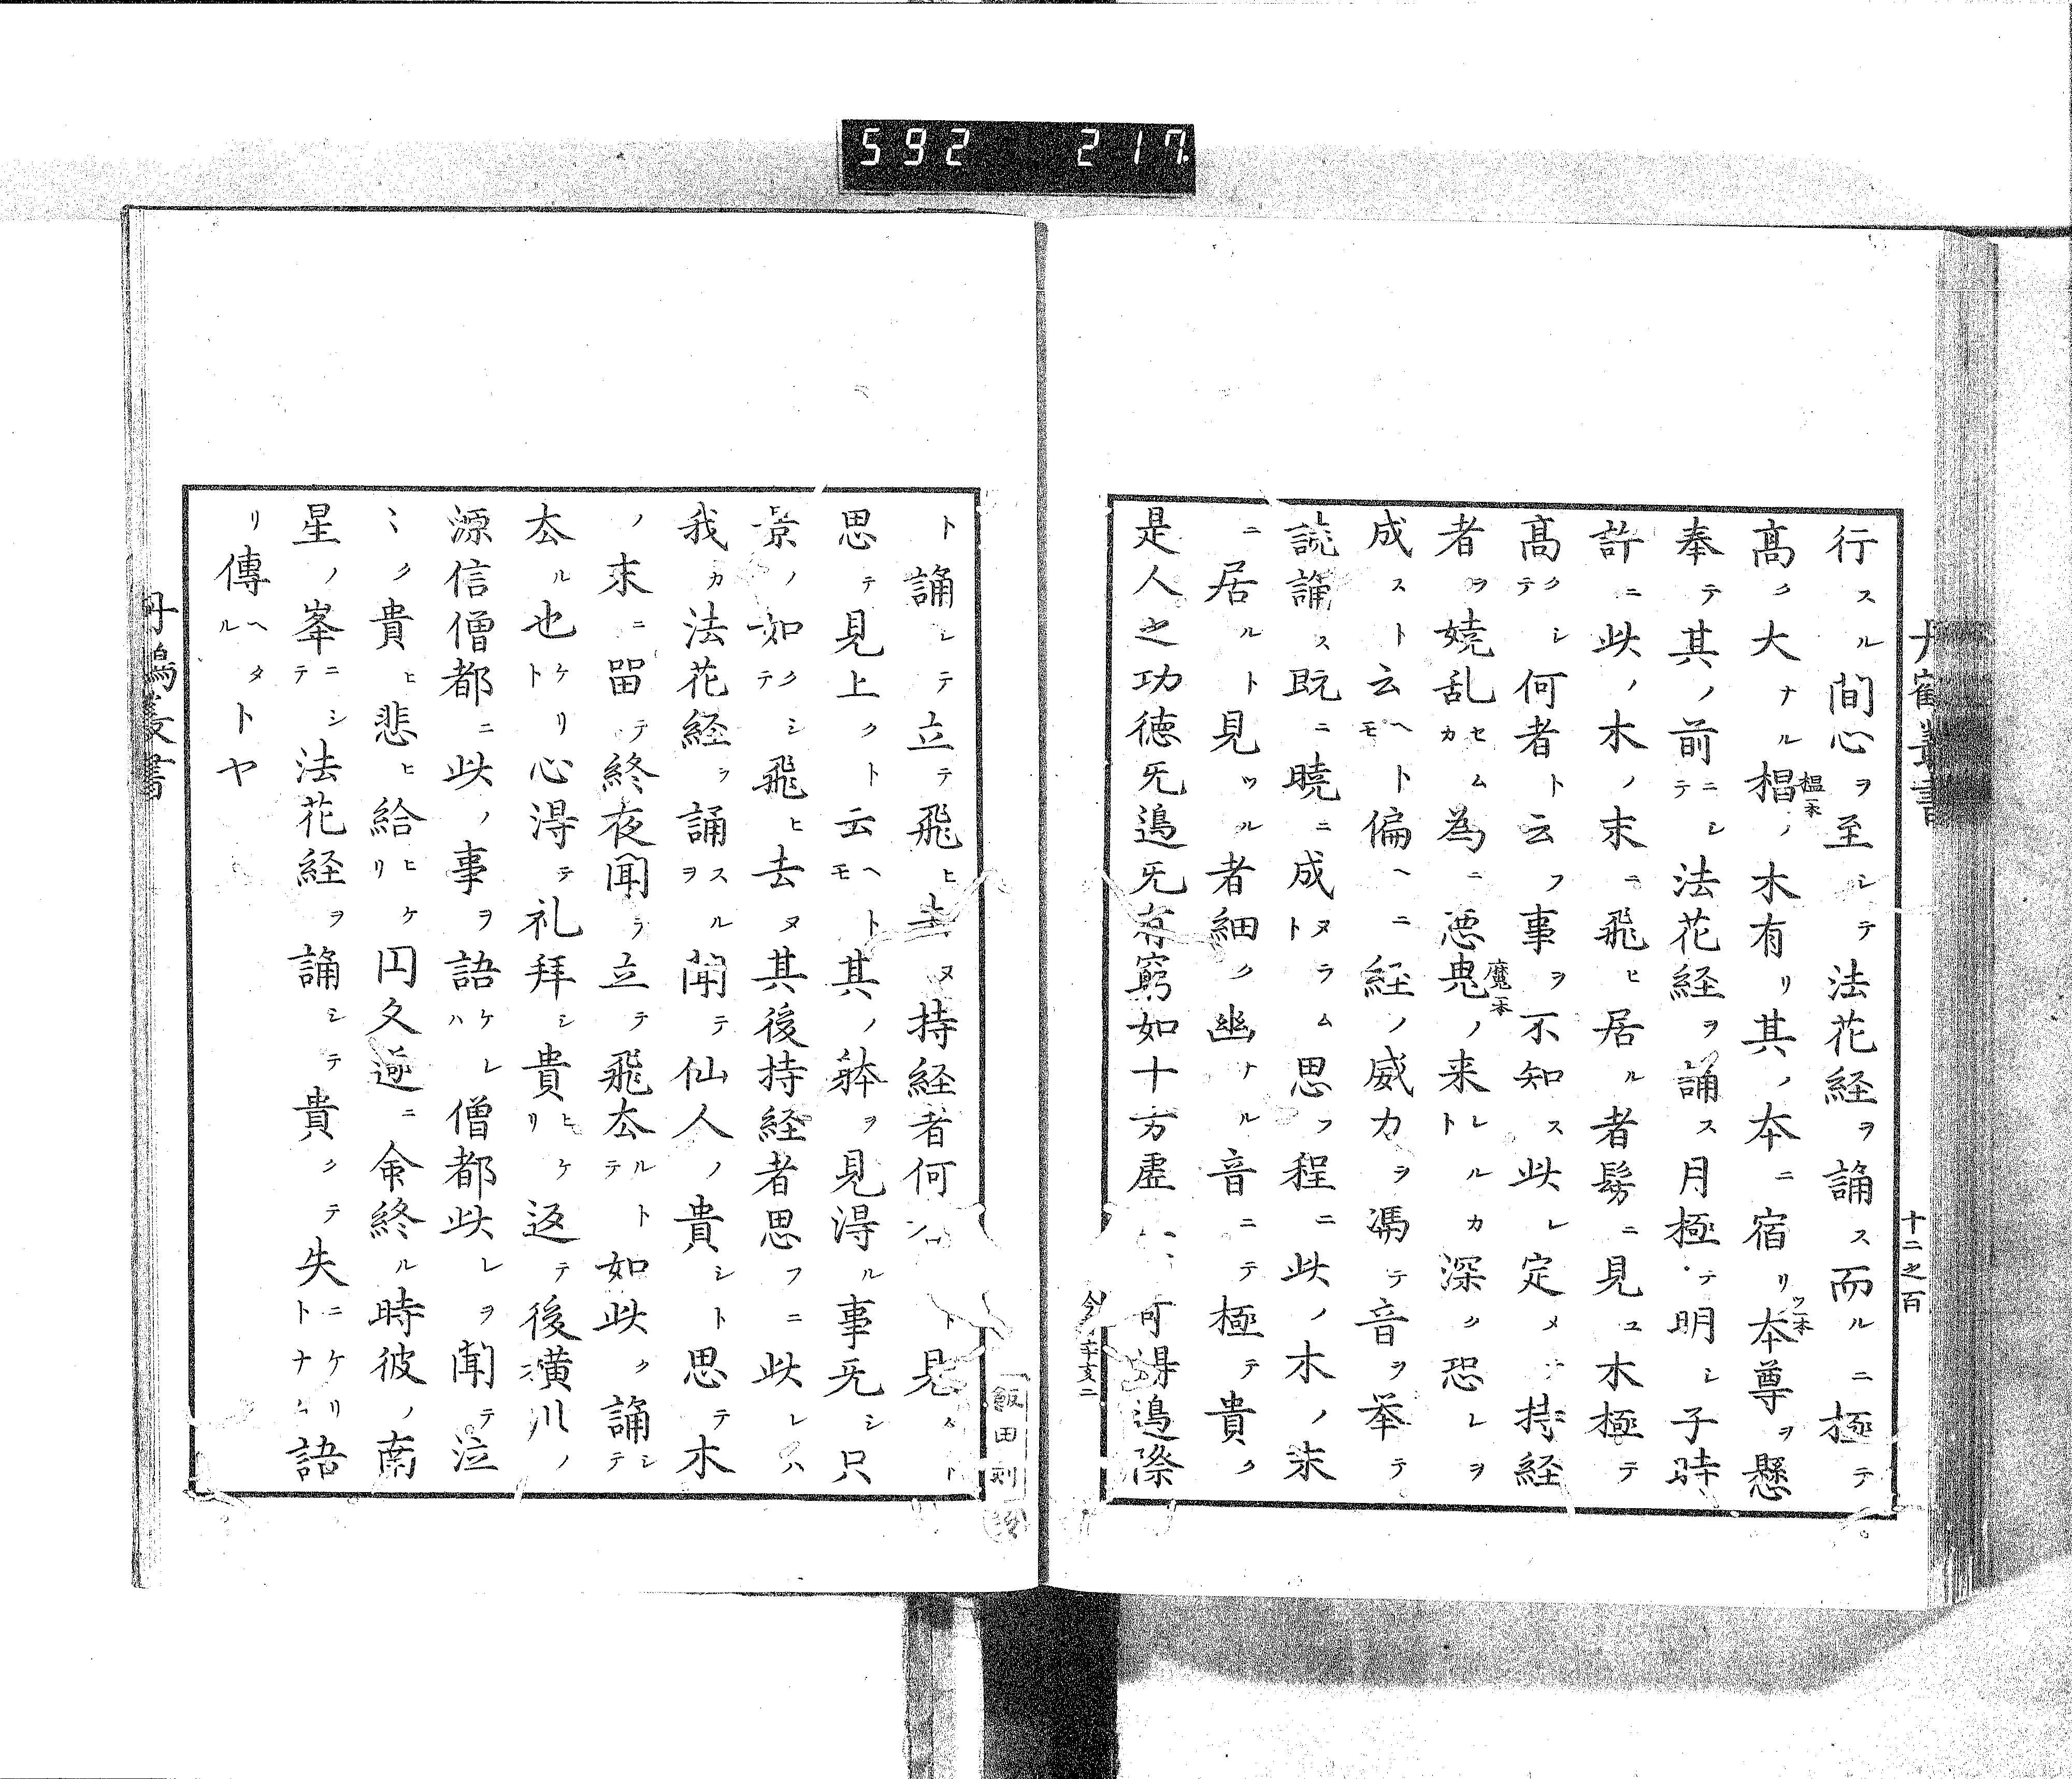 592 217
十二之百
行スル間心ヲ至シテ法花経ヲ誦ス而ルニ極テ
高ク大ナル椙ノ木有リ其ノ本ニ宿リ本尊ヲ懸
榲一本
ツ一本
奉テ其ノ前ニシテ法花経ヲ誦ス月極テ明シ子時
許ニ此ノ木ノ末ニ飛ヒ居ル者髣ニ見ユ木極テ
高クシテ何者ト云フ事ヲ不知ス此レ定メテ持経
者ヲ嬈乱セムカ為ニ悪鬼ノ来レルカト深ク恐レヲ
魔一本
成スト云ヘトモ偏ヘニ経ノ威力ヲ馮テ音ヲ挙テ
読誦ス既ニ暁ニ成ヌラムト思フ程ニ此ノ木ノ末
ニ居ルト見ツル者細ク幽ナル音ニテ極テ貴ク
是人之功徳旡邉旡有窮如十方虚可得邉際
今辛亥二
ト誦シテ立テ飛ヒ去ヌ持経者何ト見
思テ見上クト云ヘトモ其ノ躰ヲ見得ル事旡シ只
景ノ如クシテ飛ヒ去ヌ其後持経者思フニ此レハ
我カ法花経ヲ誦スルヲ聞テ仙人ノ貴シト思テ木
ノ末ニ畄テ終夜聞ラ立テ飛厺ルトテ如此ク誦シテ
厺ル也ケリト心淂テ礼拝シ貴ヒケリ返テ後横川ノ
源信僧都ニ此ノ事ヲ語ケレハ僧都此レヲ聞テ泣
〻ク貴ヒ悲ヒ給ヒケリ円久遂ニ命終ル時彼ノ南
星ノ峯ニシテ法花経ヲ誦シテ貴クテ失ニケリトナム語
リ傳ヘタルトヤ
丹鶴叢書
飯田刻